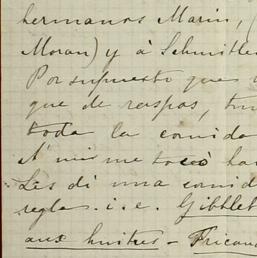 hermanos Marin, (
Moran) y á Schmitle
Por supuesto que
que de raspas, tu
toda la comida
A mi me tocó ha
Les di una comid
regla. i. e. Gibblet
aux huitres - Frican